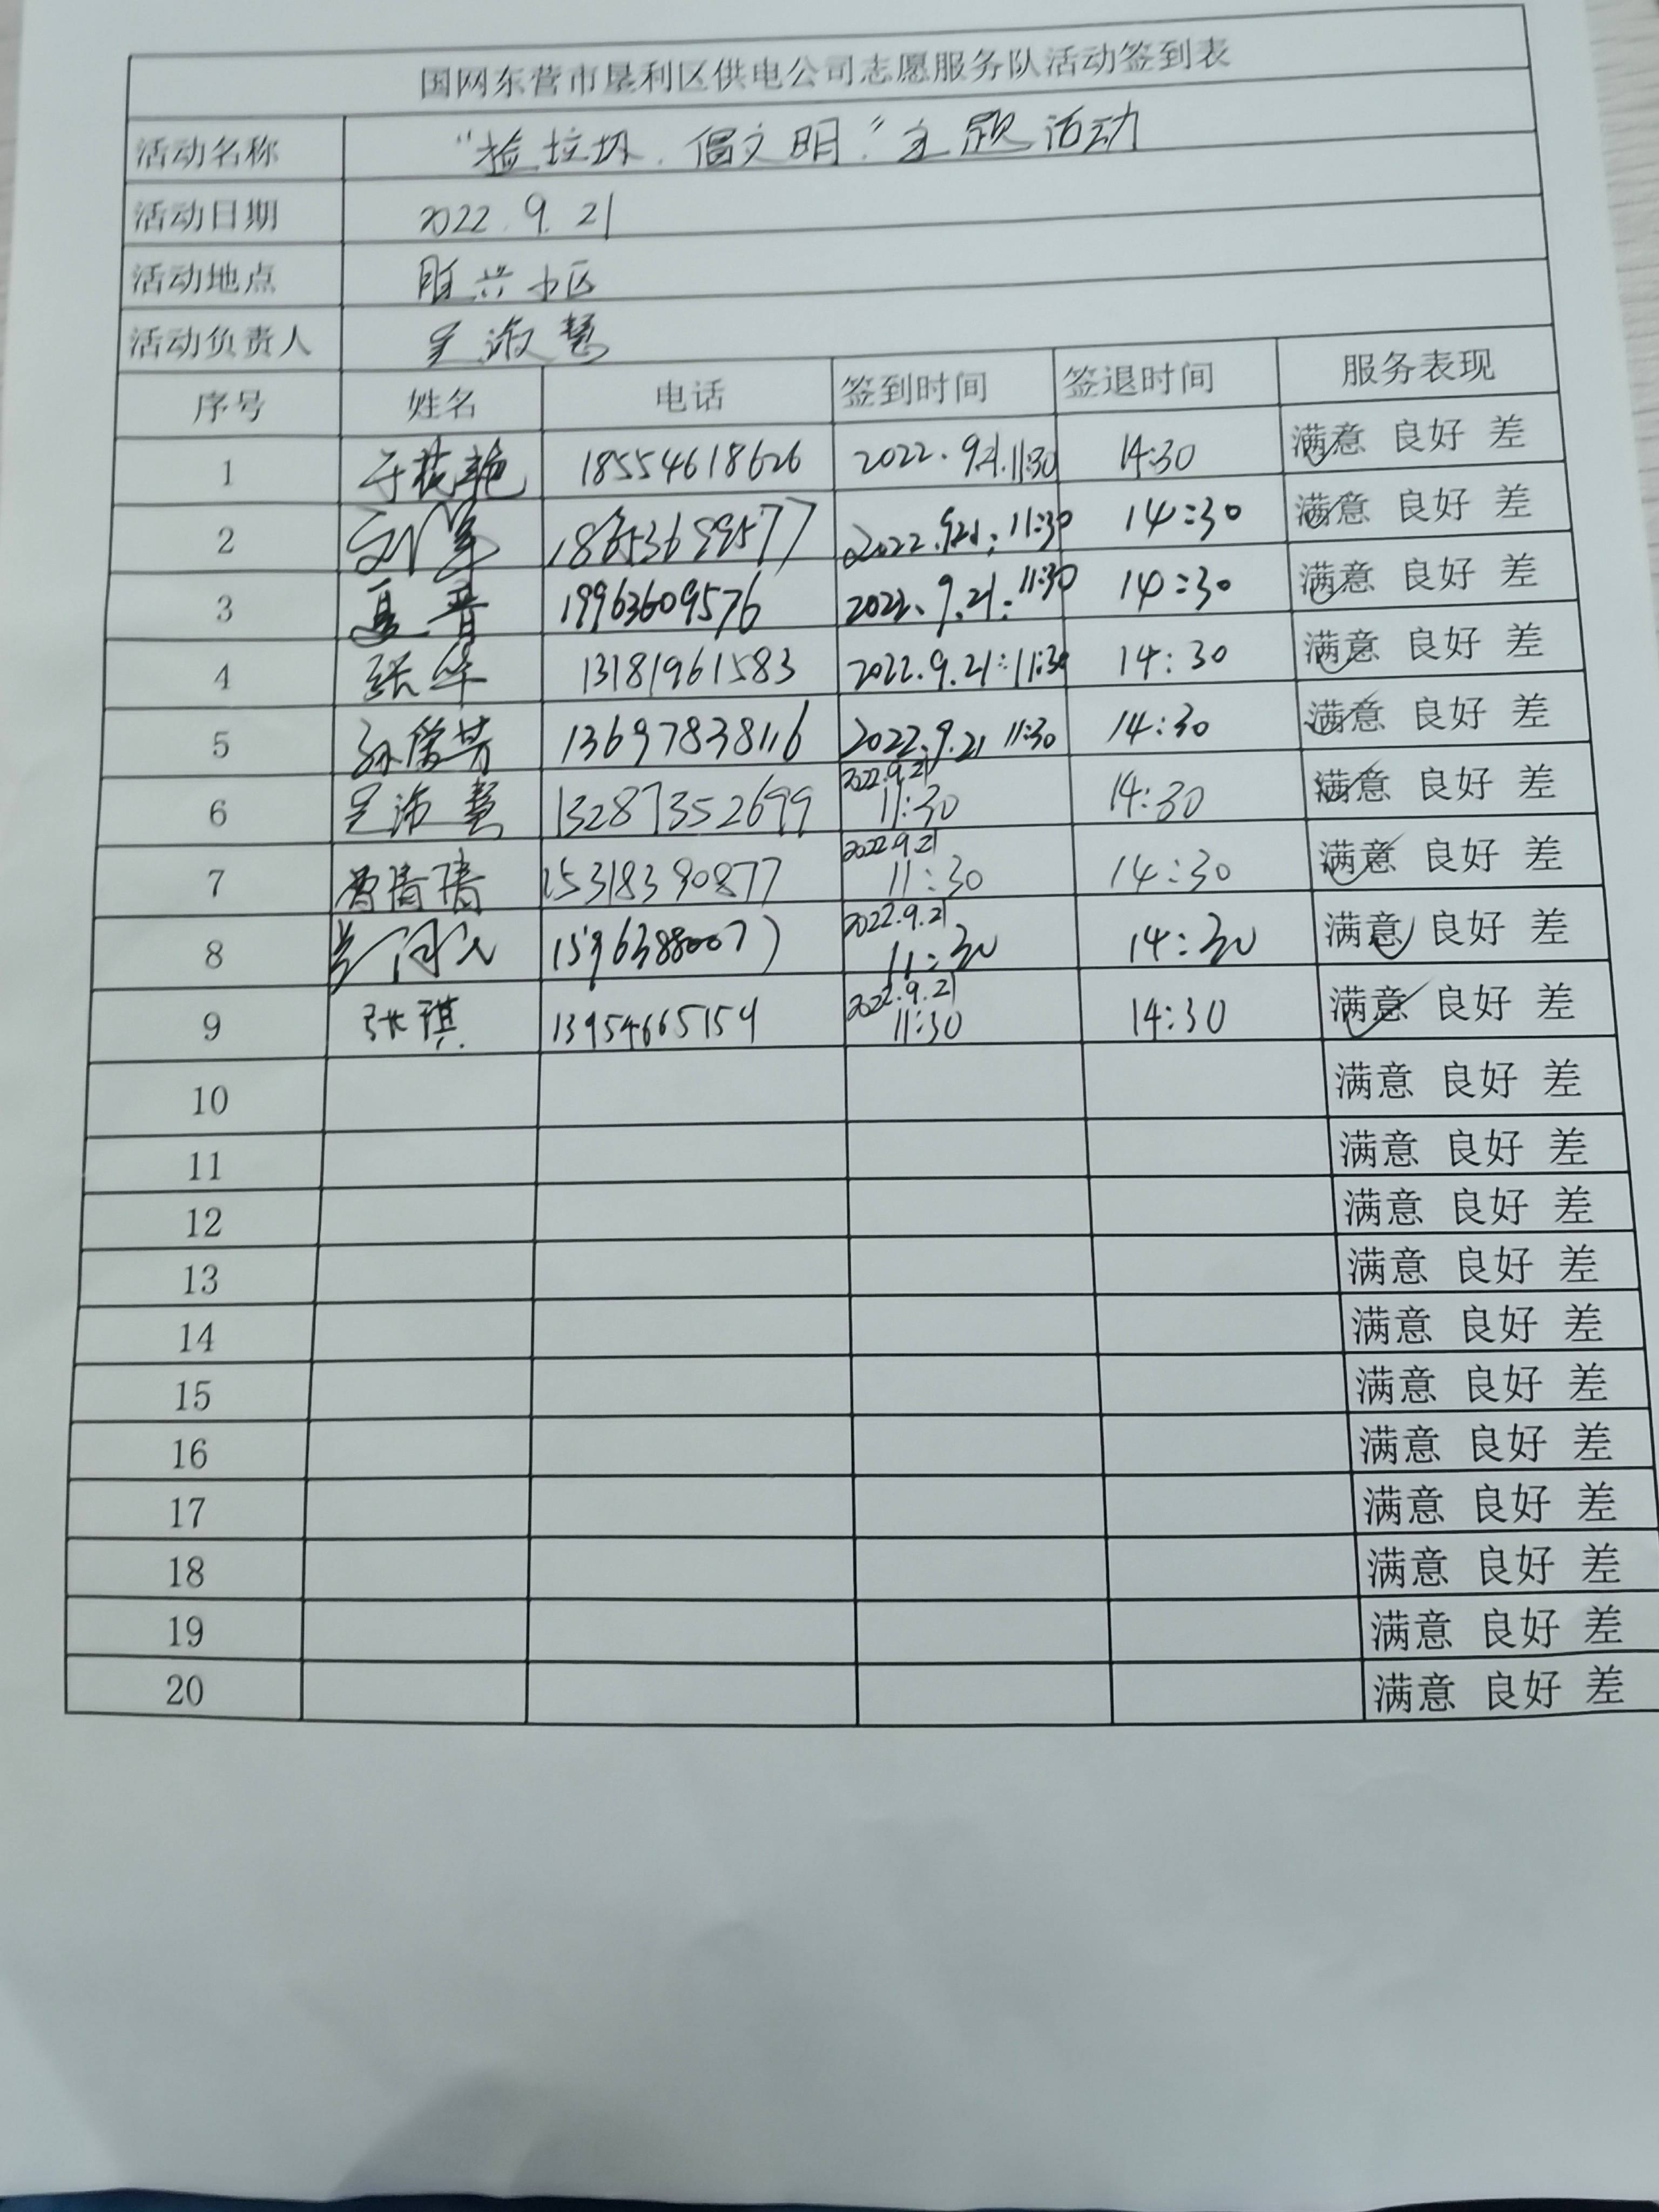 国网东营市垦利区供电公司志愿服务队活动签到表
活动名称 “捡垃圾、倡文明”主题活动
活动日期 2022.9.21
活动地点 胜兴小区
活动负责人 吴淑慧
序号 姓名 电话 签到时间 签退时间 服务表现
1 于花艳 18554618626 2022.9.21.11:30 14:30 满意 良好 差
2 2022.9.21:11:30 14:30 满意 良好 差
3 19963609576 2022.9.21:11:30 14:30 满意 良好 差
4 张华 13181961583 2022.9.21:11:30 14:30 满意 良好 差
5 13697838116 2022.9.21 11:30 14:30 满意 良好 差
6 13287352699 2022.9.21 11:30 14:30 满意 良好 差
7 15318390877 2022.9.21 11:30 14:30 满意 良好 差
8 2022.9.21 11:30 14:30 满意 良好 差
9 张琪 13954665154 2022.9.21 11:30 14:30 满意 良好 差
10 满意 良好 差
11 满意 良好 差
12 满意 良好 差
13 满意 良好 差
14 满意 良好 差
15 满意 良好 差
16 满意 良好 差
17 满意 良好 差
18 满意 良好 差
19 满意 良好 差
20 满意 良好 差